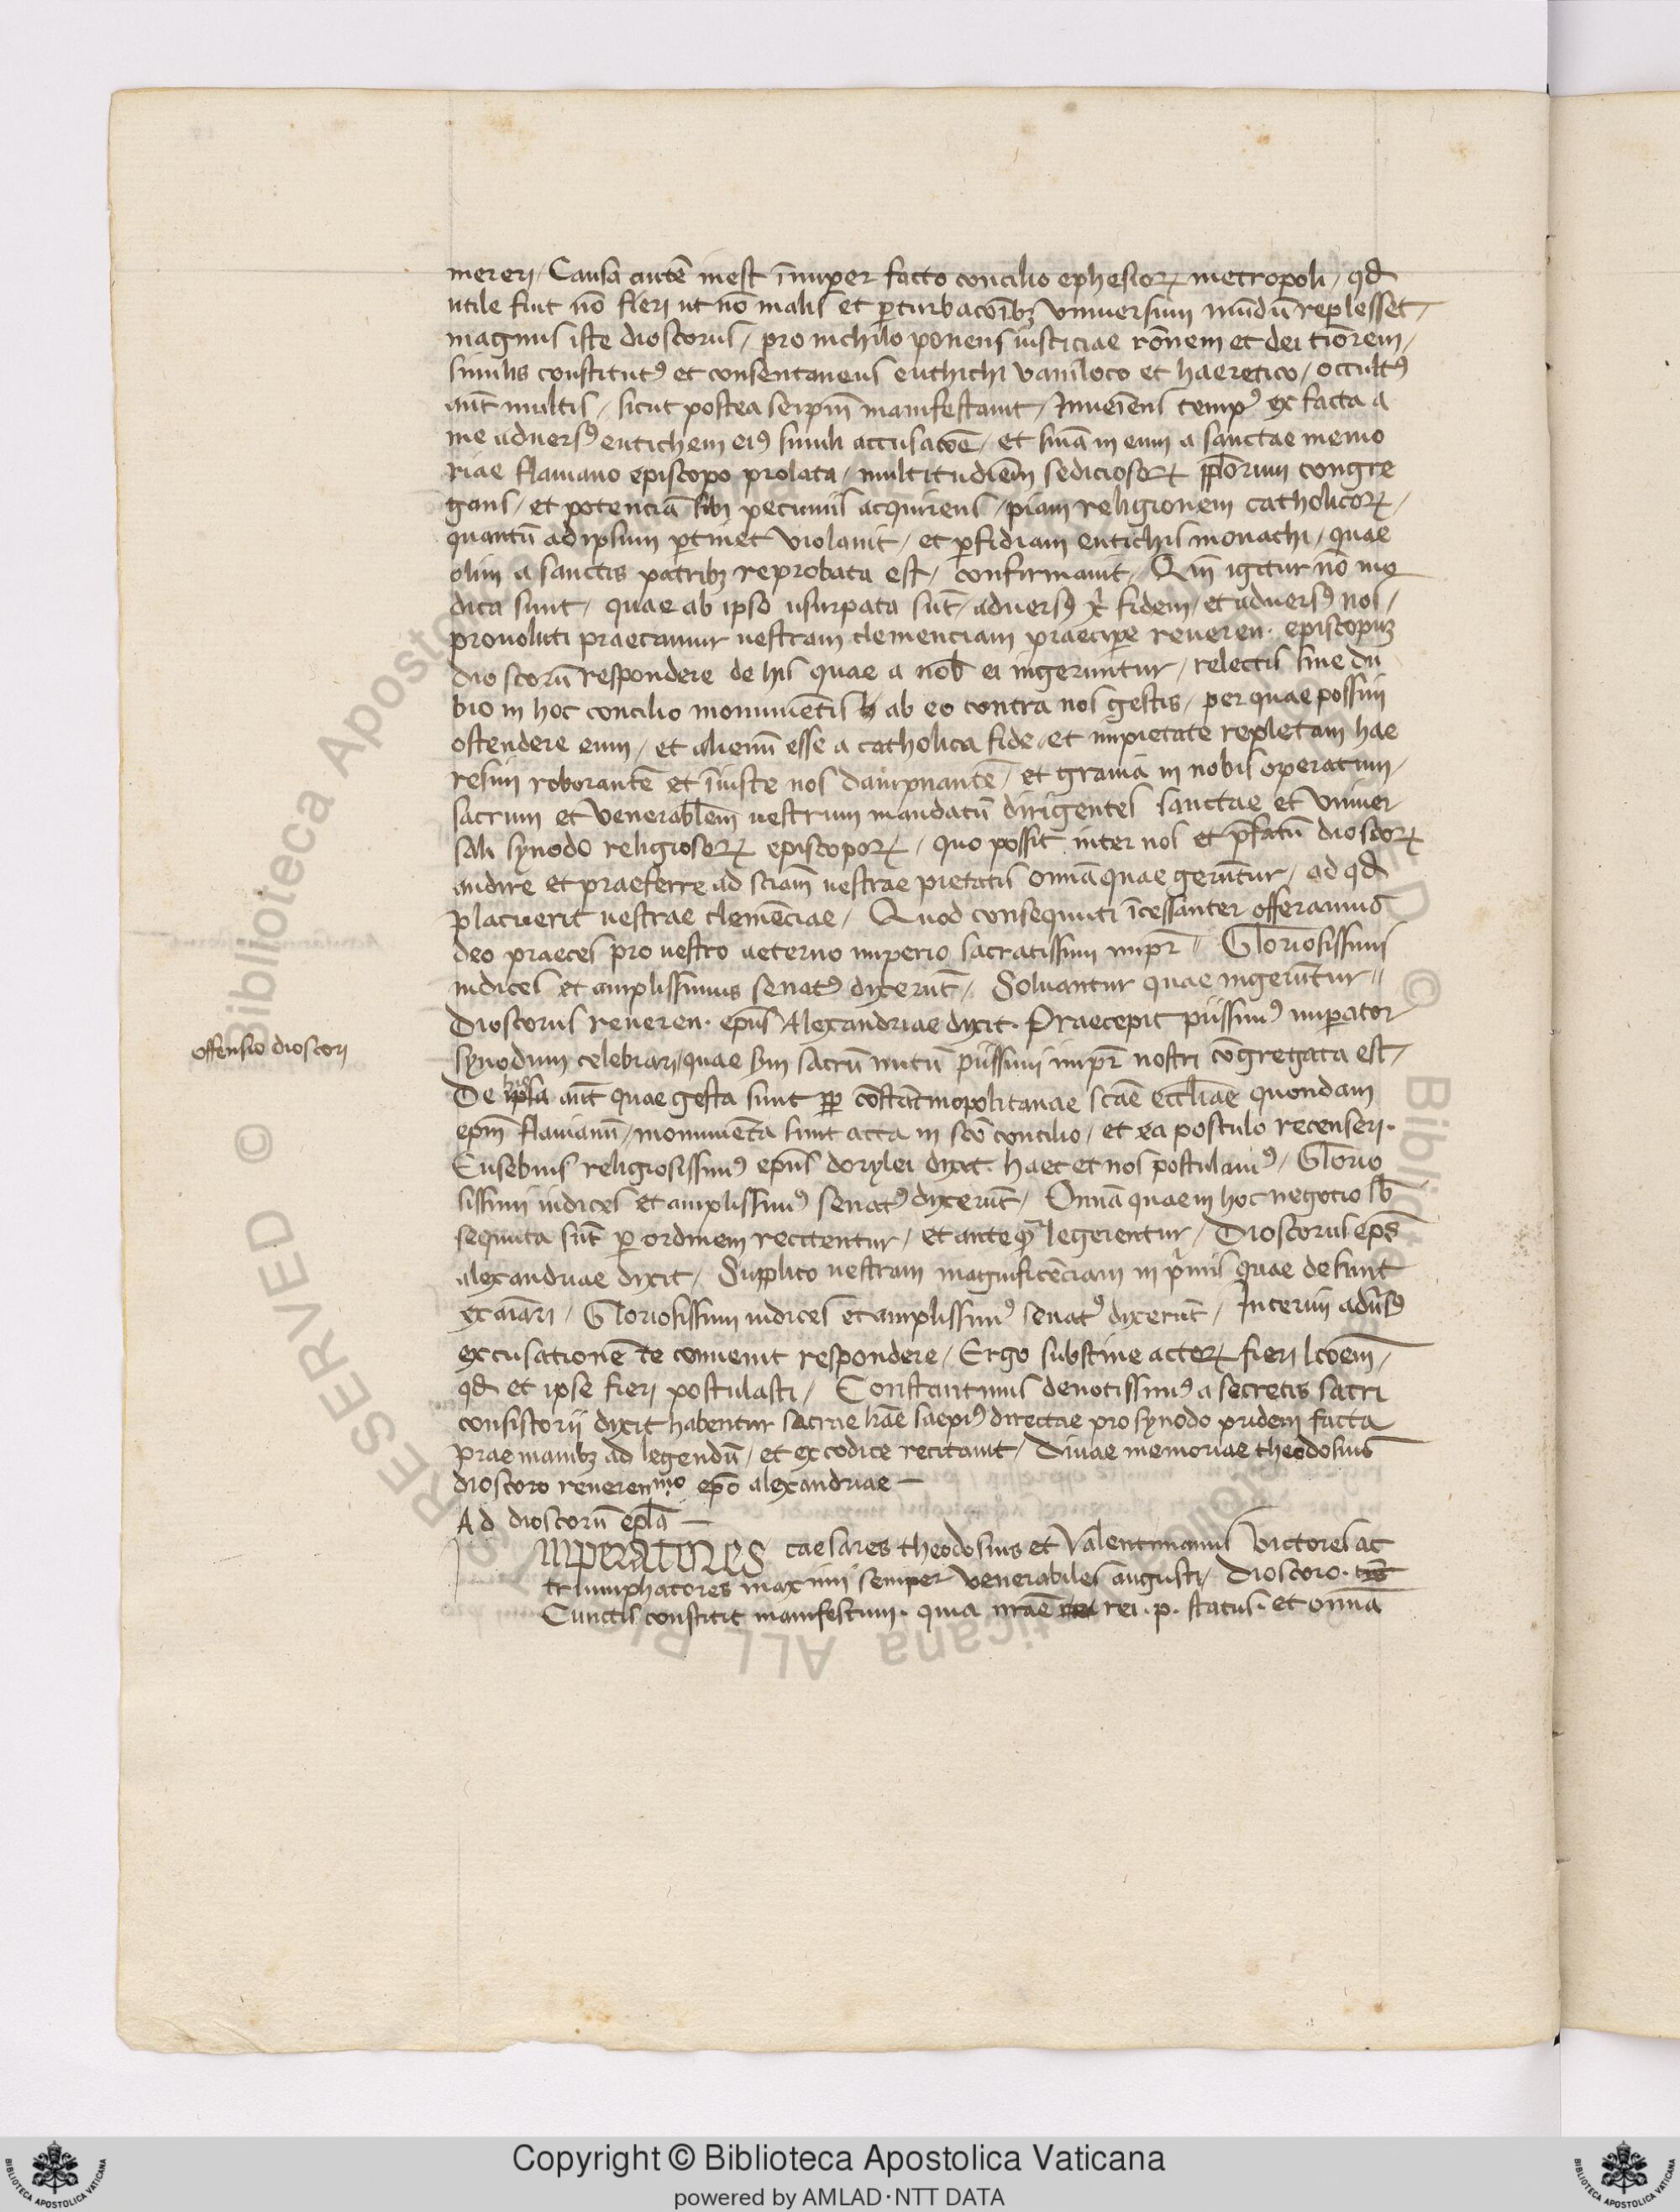 mereri / Causa autē inest īnuper facto concilio ephesioꝝ metropoli / qd
utile fuit nō fieri ut nō malis et ꝑturbacōībꝫ vniuersum mūdū replesset /
magnus iste dioscorus / pro nichilo ponens iusticiae rōnem et dei tiōrem /
similis constitutꝰ et consentaneus euthichi vaniloco et haeretico / occultꝰ
aūt multis / sicut postea seipm̄ manifestauit / Inueīens tempꝰ ex facta a
me aduersꝰ eutichem eiꝰ simili accusacōe / et sniām in eum a sanctae memo
riae flauiano episcopo prolata / multitudiēm sediciosoꝝ pp̄lorum congre
gans / et potenciā sibi pecuniis acquirens / piam religionem catholicoꝝ /
quantū ad ipsum ꝑtinet violauit / et ꝑfidiam eutichis monachi / quae
olim a sanctis patribꝫ reprobata est / confirmauit / Qm̄ igitur nō mo
dica sunt / quae ab ipso usurpata sūt / aduersꝰ xp̄i fidem / et aduersꝰ nos /
prouoluti praecamur uestram clemenciam praecipe reueren. episcopuꝫ
dioscorū respondere de his quae a nob̄ ei ingeruntur / relectis sine du
bio in hoc concilio monumētis ab eo contra nos gestis / per quae possim
ostendere eum / et alienū esse a catholica fide / et impietate repletam hae
resim roborantē et īiuste nos dampnantē / et grauia in nobis operatum /
sacrum et venerabl̄em uestrum mandatū dirigentes sanctae et vniuer
sali synodo religiosoꝝ episcopoꝝ / quo possit inter nos et p̄fatū dioscoꝝ
audire et praeferre ad sciām uestrae pietatis omnia quae gerūtur / ad qd
placuerit uestrae clemēciae / Quod consequuti īcessanter offeramus
deo praeces pro uestro aeterno imperio sacratissimi imꝑr̄ // Gloriosissimi
iudices et amplissimus senatꝰ dixerūt / Soluantur quae ingerūtur //
Dioscorus reueren. ep̄us Alexandriae dixit. Praecepit piissimꝰ imꝑator
offensio dioscori
synodum celebrari / quae sm̄ sacrū nutū piissimi imꝑr̄ nostri cōgregata est /
De ipsa his aūt quae gesta sunt ꝓp cōstātinopolitanae sc̄ae eccl̄iae quondam
ep̄m flauianū / monumēta sunt acta in sc̄o concilio / et ea postulo recenseri.
Eusebius religiosissimꝰ ep̄us dorylei dixit. haec et nos postulamꝰ / Glorio
sissimi iudices et amplissimꝰ senatꝰ dixerūt / Omnia quae in hoc negocio sb̄
sequuta sūt ꝑ ordinem recitentur / et anteq̄ legerentur / Dioscorus ep̄s
alexandriae dixit / Supplico uestram magnificēciam in p̄mis quae de sunt
exaīari / Gloriosissimi iudices et amplissimꝰ senatꝰ dixerūt / Interim aduersꝰ
excusationē te conuenit respondere / Ergo substine actoꝝ fieri lcōem /
qd et ipse fieri postulasti / Constantinus deuotissimꝰ a secretis sacri
consistorii dixit habentur sacrae lr̄ae saepiꝰ directae pro synodo pridem facta
prae manibꝫ ad legendū / et ex codice recitauit / Diuae memoriae theodosius
dioscoro reuerenmo ep̄o alexandriae —
Ad dioscorū epl̄a —
Imperatores caesares theodosius et Valentinianus victores ac
triumphatores maximi semper venerabiles augusti / Dioscoro.
Cunctis constitit manifestum. quia nr̄ae rei. p. status. et omnia